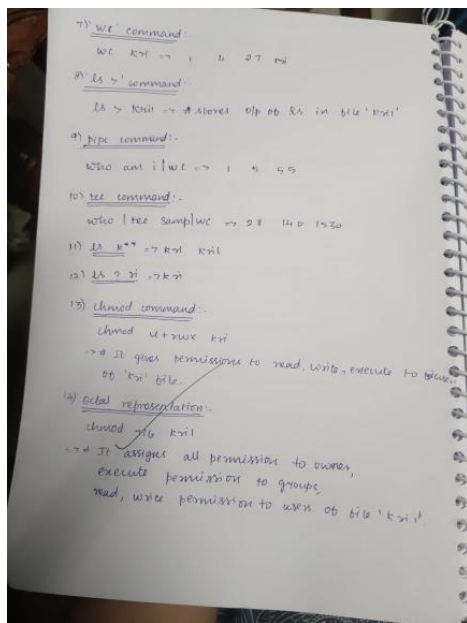 7) 'wc' command:-
wc kri => 1 4 27 kri
8) 'ls >' command:-
ls > kril => * stores o/p of ls in file 'kril'
9) pipe command:-
who am i | wc => 1 5 55
10) tee command:-
who | tee samp | wc => 28 140 1530
11) ls k** => kri kril
12) ls ? ri => kri
13) chmod command:-
chmod u+rwx kri
=> * It gives permissions to read, write, execute to
of 'kri' file.
14) octal representation:-
chmod 716 kril
=> * It assigns all permission to owner,
execute permission to groups,
read, write permission to users of file